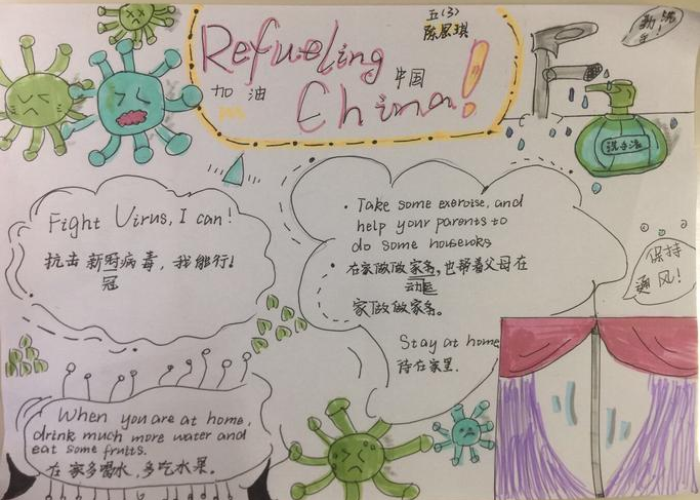 五(3)
Refueling
加油
中国
China!
勤洗手
洗手液
Fight Virus, I can!
抗击新冠病毒，我能行!
Take some exercise, and
help your parents to
do some houseworks
在家做做
运动
，也帮着父母在
家做做家务。
Stay at home
待在家里.
保持
通风!
When you are at home,
drink much more water and
eat some fruits.
在家多喝水，多吃水果。